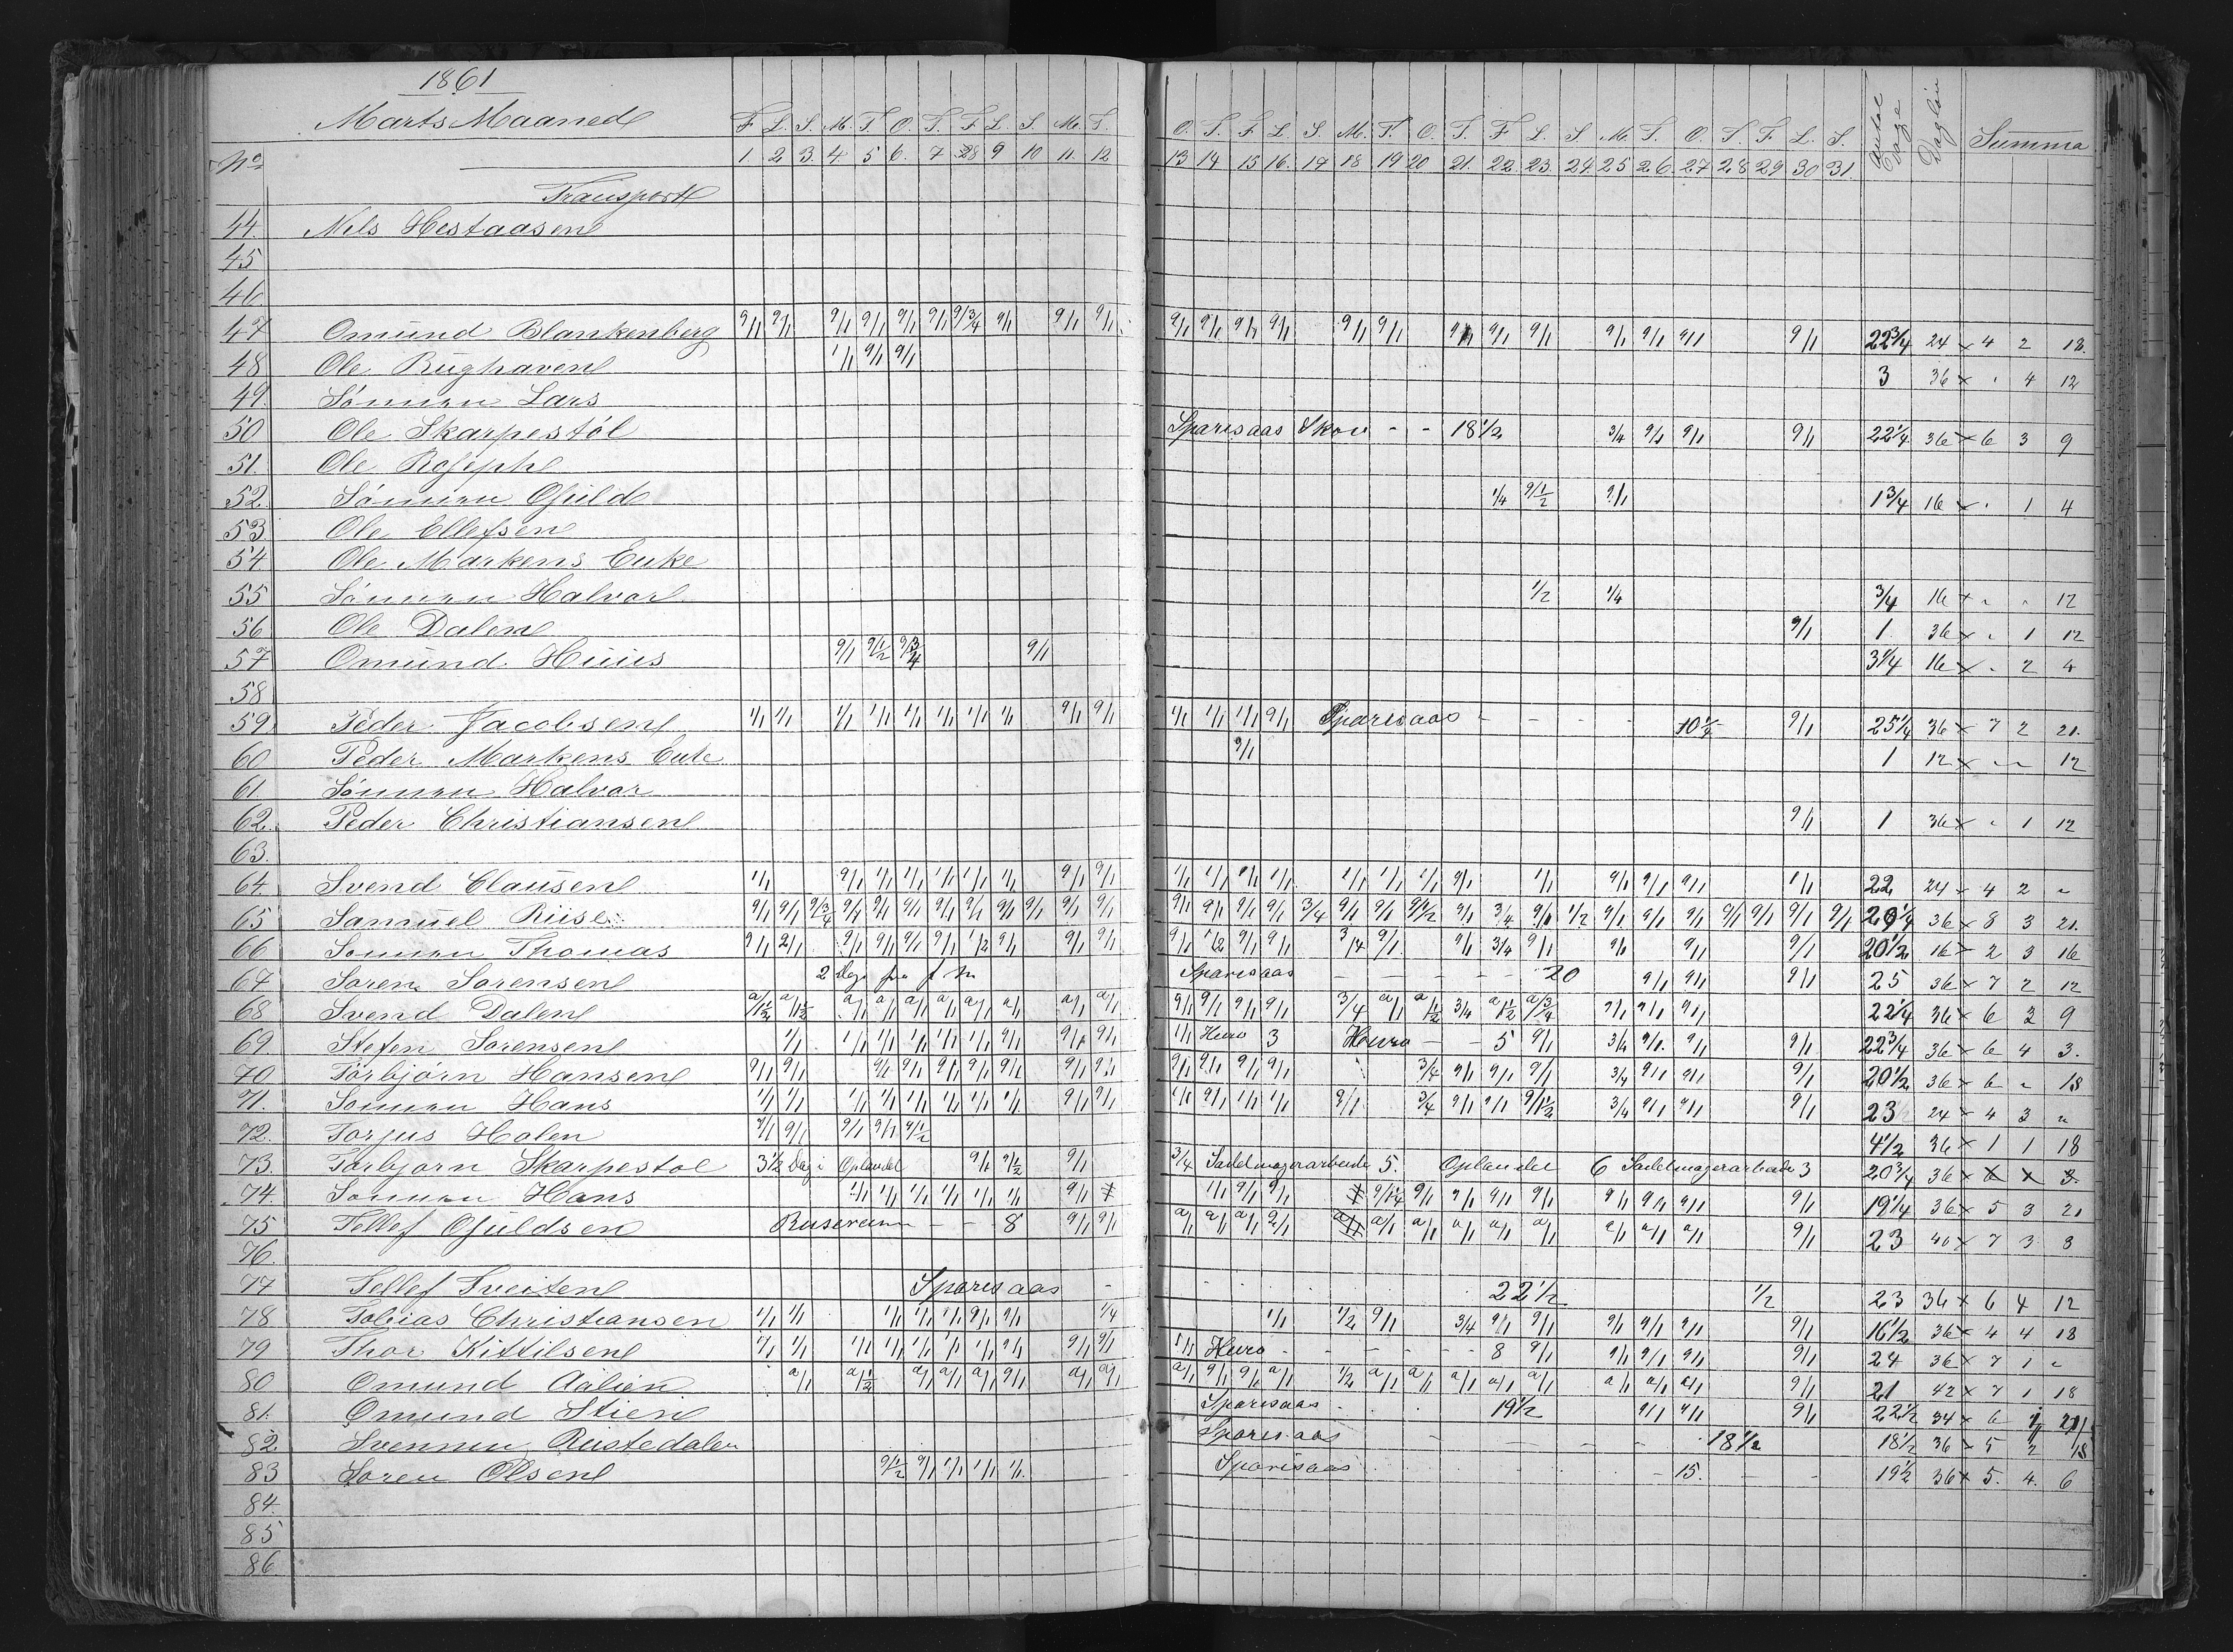 1861
Marts Maaned F L. S. M. T. O. T. F L. S. M. T. O. T. F L S. M. T. O. T. F L. S M. T. O. T. F. L. S. Antal Dage Daglön Summa
No 1 2 3. 4 5 6. 7 8 9 10 11. 12 13 14 15 16. 17 18 19 20 21. 22. 23. 24 25 26. 27 28 29 30 31.
Transport
44. Nels Hestaasen
45
46
47 Omund Blankenberg 9/1 9/1 9/1 9/1 9/1 9/1 9/3/4 9/1 9/1 9/1 9/1 9/1 9/1 9/1 9/1 9/1 9/1 9/1 9/1 9/1 9/1 9/1 9/1 22 3/4 24 x 4 2 18.
48 Ole Rughaven 1/1 9/1 9/1 3 36 x " 4 12
49 Sönnen Lars
50 Ole Skarpestöl Sparesaas Skov - - 18 1/2 3/4 9/1 9/1 9/1 22 1/4 36 x 6 3 9
51. Ole Roseph
52. Sönnen Guld 1/4 9/1/2 9/1 1 3/4 16 x " 1 4
53 Ole Ellefsen
54 Ole Markens Enke
55 Sönnen Halvor 1/2 1/4 3/4 16 x " " 12
56 Ole Dalen 9/1 1 36 x " 1 12
57 Omund Huus 9/1 9/1/2 9/3/4 9/1 3 1/4 16 x " 2 4
58
59 Peder Jacobsen 1/1 1/1 1/1 1/1 1/1 1/1 1/1 1/1 9/1 9/1 1/1 1/1 1/1 9/1 Sparesaas - - - - 10 1/4 9/1 25 1/4 36 x 7 2 21.
60 Peder Markens Enke 9/1 1 12 x " " 12
61 Sönnen Halvor
62. Peder Christiansen 9/1 1 36 x " 1 12
63.
64. Svend Clausen 1/1 9/1 1/1 1/1 1/1 1/1 1/1 9/1 9/1 1/1 1/1 1/1 1/1 1/1 1/1 1/1 9/1 1/1 9/1 9/1 9/1 1/1 22 24 x 4 2 "
65 Samuel Riise 9/1 9/1 9/3/4 9/1 9/1 9/1 9/1 9/1 9/1 9/1 9/1 9/1 9/1 9/1 9/1 9/1 3/4 9/1 9/1 9/1/2 9/1 3/4 9/1 1/2 9/1 9/1 9/1 9/1 9/1 9/1 9/1 29 1/4 36 x 8 3 21.
66 Sonnen Thomas 9/1 9/1 9/1 9/1 9/1 9/1 1/2 9/1 9/1 9/1 9/1 1/2 9/1 9/1 3/4 9/1 9/1 3/4 9/1 9/1 9/1 9/1 20 1/2 16 x 2 3 16
67 Soren Sorensen 2 Dage Sparesaas - - - - - 20 9/1 9/1 9/1 25 36 x 7 2 12
68 Svend Dalen a/1/2 a/1/2 a/1 a/1 a/1 a/1 a/1 a/1 a/1 a/1 9/1 9/1 9/1 9/1 3/4 a/1 a/1/2 3/4 a/1/2 a/3/4 9/1 9/1 9/1 22 1/4 36 x 6 3 9
69. Stefen Sorensen 1/1 1/1 1/1 1/1 1/1 1/1 9/1 9/1 9/1 1/1 Heiro 3 Heiro - - 5 9/1 3/4 9/1 9/1 9/1 22 3/4 36 x 6 4 3.
70 Törbjörn Hansen 9/1 9/1 9/1 9/1 9/1 9/1 9/1 9/1 9/1 9/1 9/1 9/1 9/1 3/4 9/1 9/1 9/1 3/4 9/1 9/1 9/1 20 1/2 36 x 6 " 18
71. Sonnen Hans 1/1 1/1 1/1 1/1 1/1 1/1 1/1 1/1 9/1 9/1 1/1 9/1 1/1 1/1 9/1 3/4 9/1 9/1 9/1/2 3/4 9/1 9/1 9/1 23 24 x 4 3 "
72. Torjus Holen 9/1 9/1 9/1 9/1 9/1/2 4 1/2 36 x 1 1 18
73. Torbjorn Skarpestol 3 1/2 Dag i Oplandet 9/1 9/1/2 9/1 3/4 Sadelmagerarbeide 5. Oplandet 6 Sadelmagerarbeide 3 20 3/4 36 x 6 x 3.
74. Sonnen Hans 1/1 1/1 1/1 1/1 1/1 1/1 9/1 1/1 9/1 9/1 9/1/4 9/1 9/1 9/1 9/1 9/1 9/1 9/1 9/1 19 1/4 36 x 5 3 21
75 Tellef Guldsen - - 8 9/1 9/1 a/1 a/1 a/1 9/1 a/1 a/1 a/1 a/1 a/1 a/1 a/1 a/1 a/1 9/1 23 40 x 7 3 8
76.
77 Tellef Sveiten Sparesaas - 22 1/2 1/2 23 36 x 6 4 12
78 Tobias Christiansen 1/1 1/1 1/1 1/1 1/1 9/1 9/1 1/4 1/1 1/2 9/1 3/4 9/1 9/1 9/1 9/1 9/1 9/1 16 1/2 36 x 4 4 18
79 Thor Kittilsen 1/1 1/1 1/1 1/1 1/1 1/1 1/1 9/1 9/1 9/1 1/1 Heiro - - - - - 8 9/1 9/1 9/1 9/1 9/1 24 36 x 7 1 "
80 Omund Aalien a/1 a/1/2 a/1 a/1 a/1 9/1 a/1 a/1 a/1 9/1 9/1 a/1 1/2 a/1 a/1 a/1 a/1 a/1 a/1 a/1 a/1 9/1 21 42 x 7 1 18
81. Omund Stien Sparesaas 19 1/2 9/1 9/1 9/1 22 1/2 34 x 6 1 21
82 Svennen Rustedalen Sparesaas - - - - - 18 1/2 18 1/2 36 x 5 2 18
83 Soren Olsen 9/1/2 9/1 1/1 1/1 1/1 Sparesaas - 15. - - 19 1/2 36 x 5. 4. 6
84.
85
86